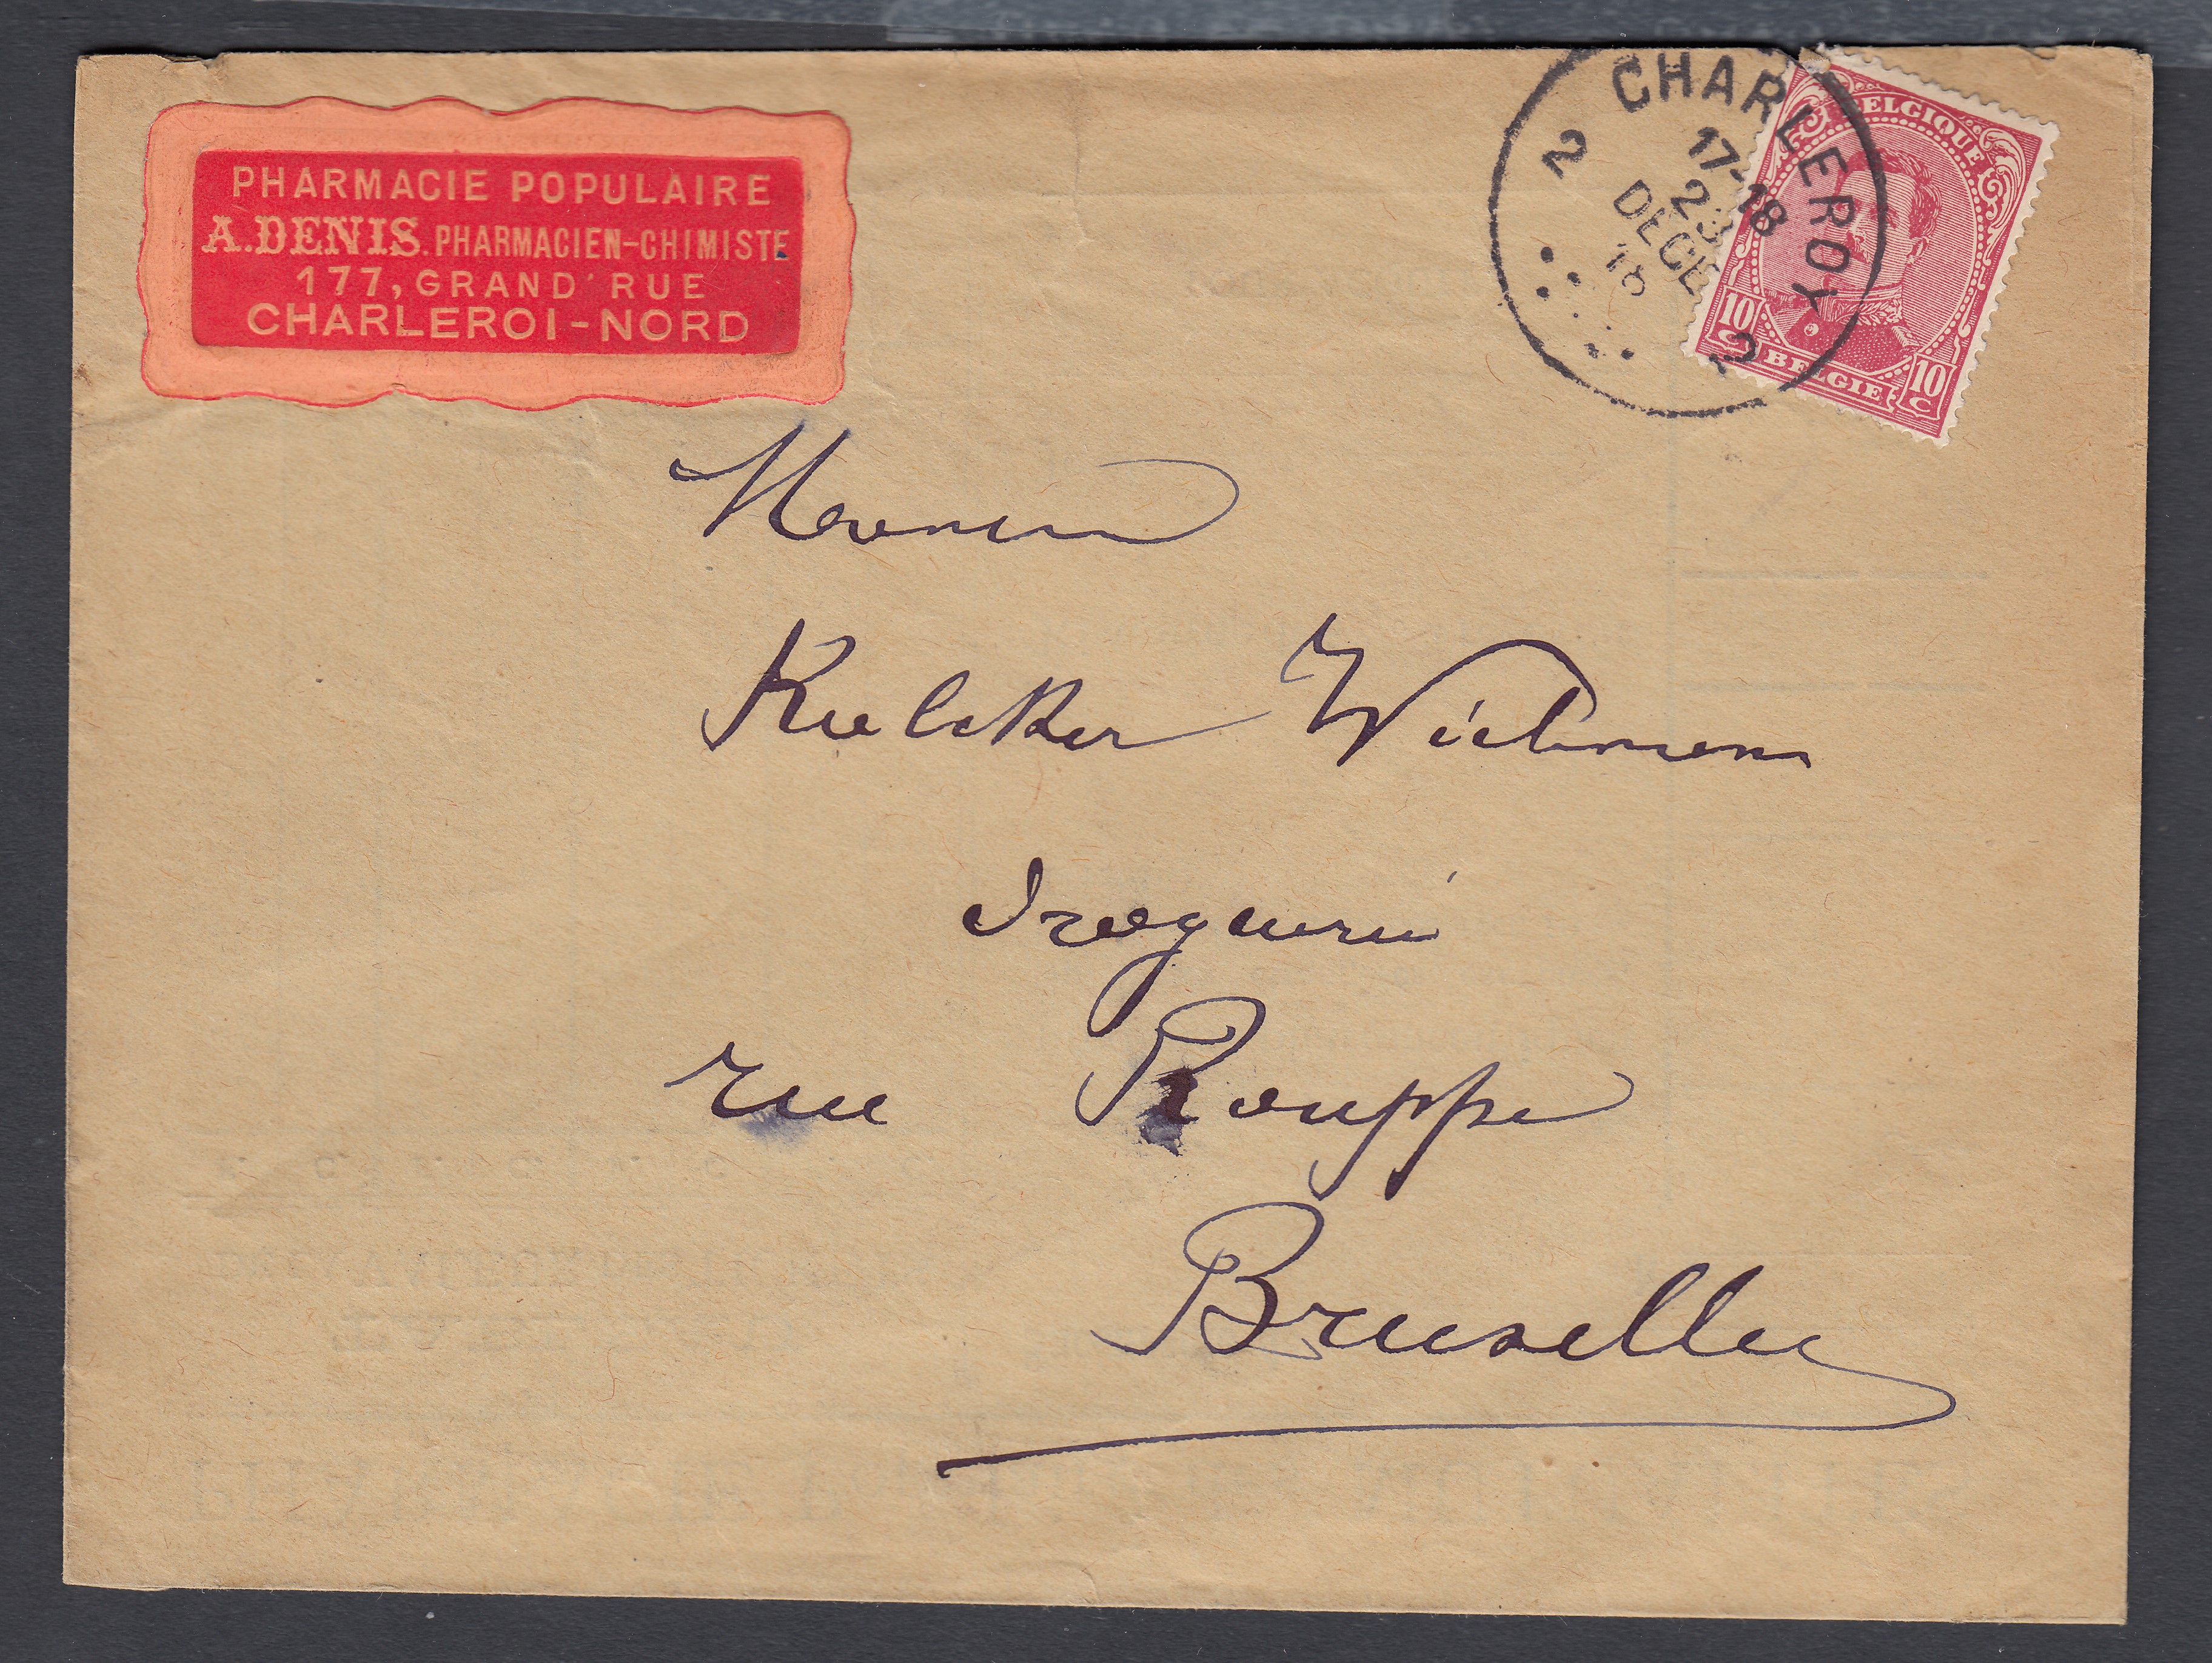 PHARMACIE POPULAIRE
A. DENIS. PHARMACIEN-CHIMISTE
177, GRAND' RUE
CHARLEROI-NORD
CHARLEROY
2 2
17-18
23
DECE
18
BELGIQUE
10 C 10 C
BELGIE
Monsieur
droguerie
rue Rouppe
Bruxelles